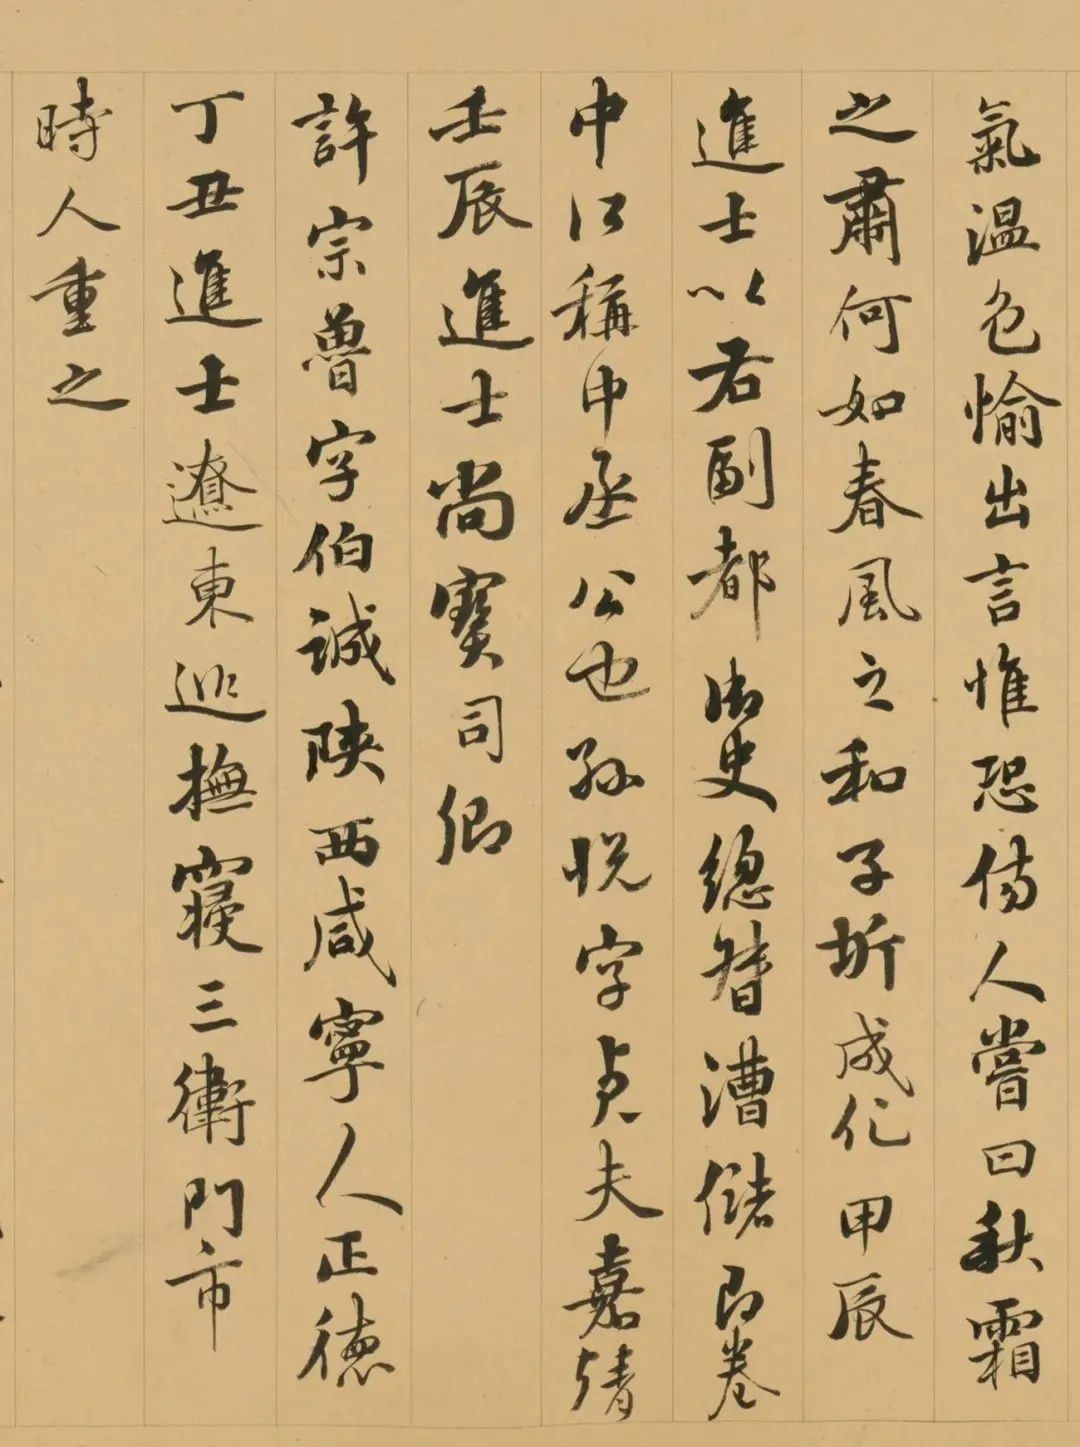 氣溫色愉出言惟恐傷人嘗曰秋霜
之肅何如春風之和子圻成化甲辰
進士以右副都御史總督漕儲即卷
中江稱中丞公也孫悅字貞夫嘉靖
壬辰進士尚寶司卿
許宗魯字伯誠陝西咸寧人正德
丁丑進士遼東巡撫寢三衛門市
時人重之